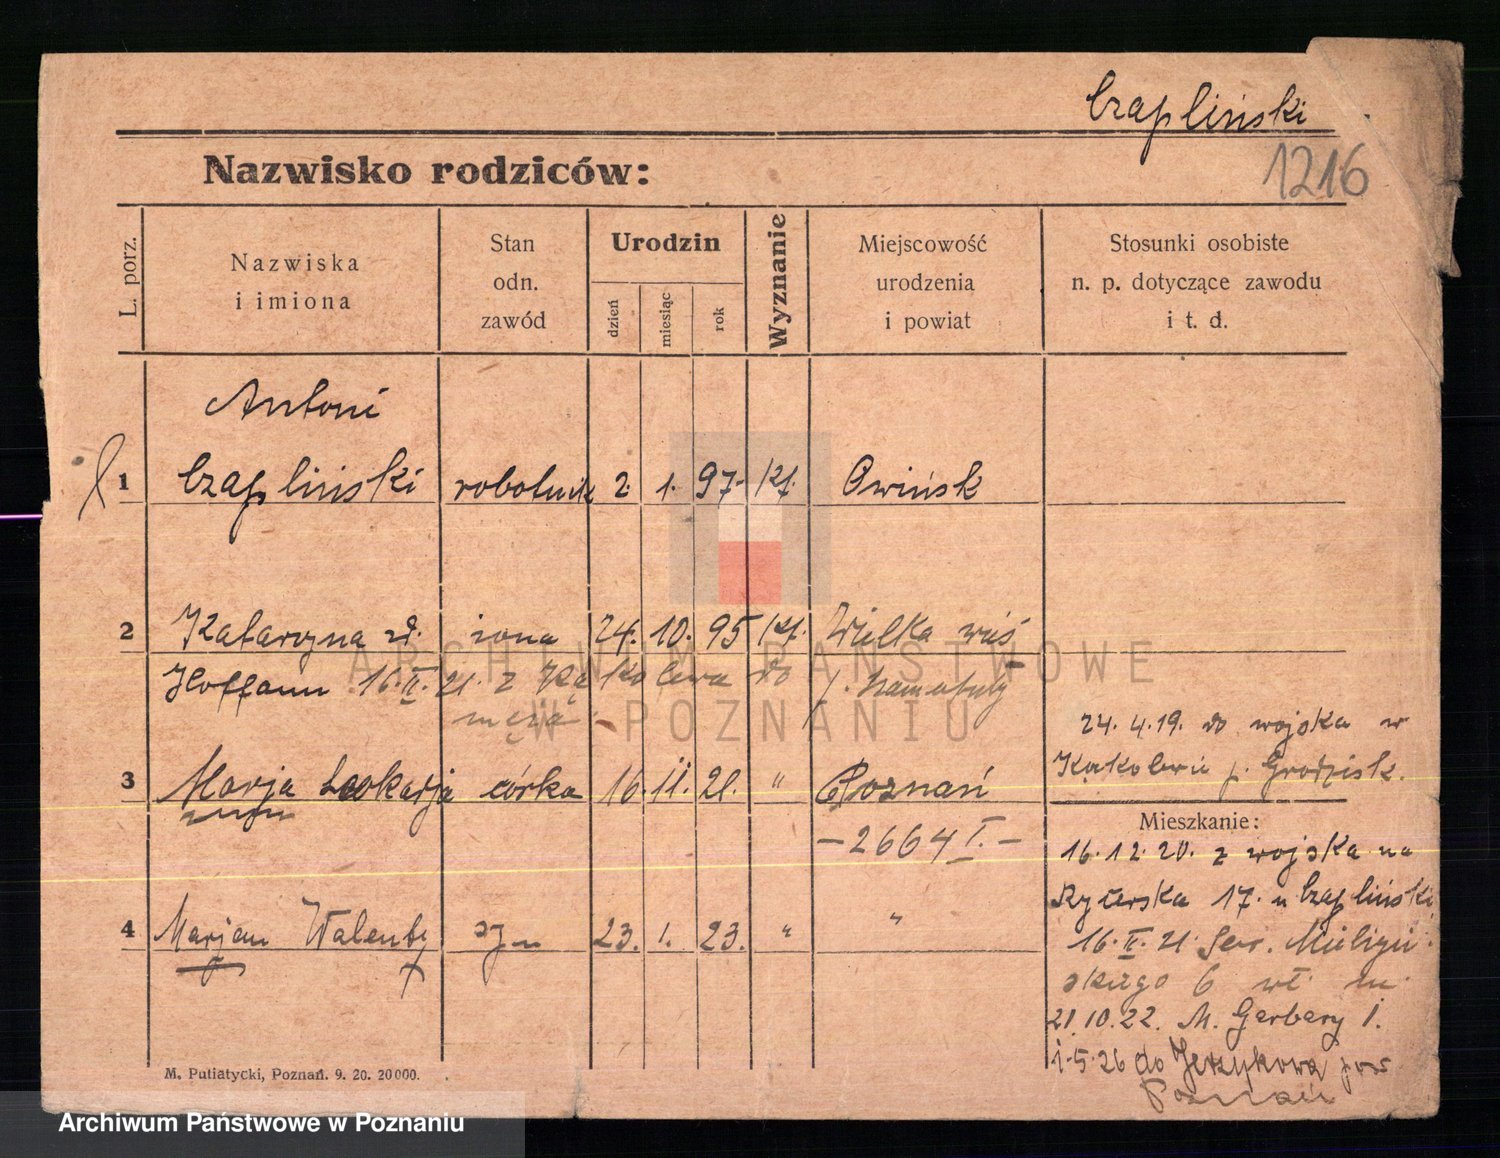 Czapliński
1216
Nazwisko rodziców:
L. porz.
Nazwiska
i imiona
Stan
odn.
zawód
Urodzin
dzień
miesiąc
rok
Wyznanie
Miejscowość
urodzenia
i powiat
Stosunki osobiste
n. p. dotyczące zawodu
i t. d.
Antoni
1 Czapliński robotnik 2. 1. 97. kt. Owińsk
2 Katarzyna żona 24. 10. 95 kt. Wielka wieś
Hoffann 16.II.21. z Kąkolewa do p. Szamotuły
męża
24. 4. 19. do wojska w
Kąkolewie p. Grodzisk.
3 Marja Leokadja córka 16. 11. 21. " Poznań
Mieszkanie:
-2664 I.-
16. 12. 20. z wojska na
Rycerska 17. u Czapliński
4 Marjan Walenty syn 23. 1. 23. " "
16. II. 21
skiego 6 wł. m.
21.10.22. M. Garbary 1.
1.5.26 do Jerzykowa pow
Poznań
M. Putiatycki, Poznań. 9. 20. 20000.
ARCHIWUM PAŃSTWOWE
W POZNANIU
Archiwum Państwowe w Poznaniu